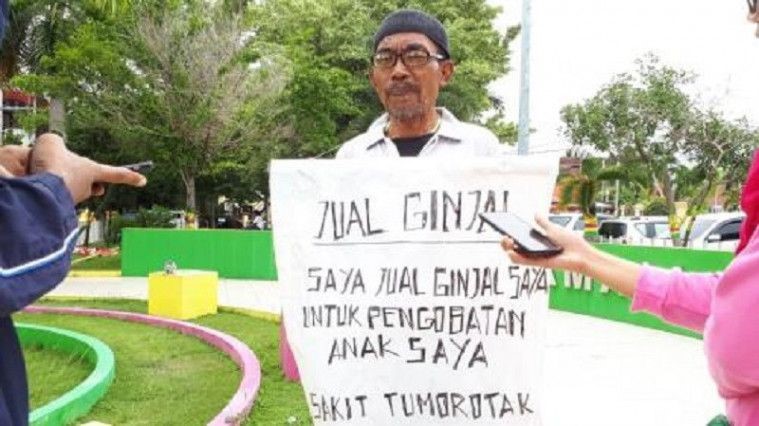 JUAL GINJAL
SAYA JUAL GINJAL SAYA
UNTUK PENGOBATAN
ANAK SAYA
SAKIT TUMOROTAK